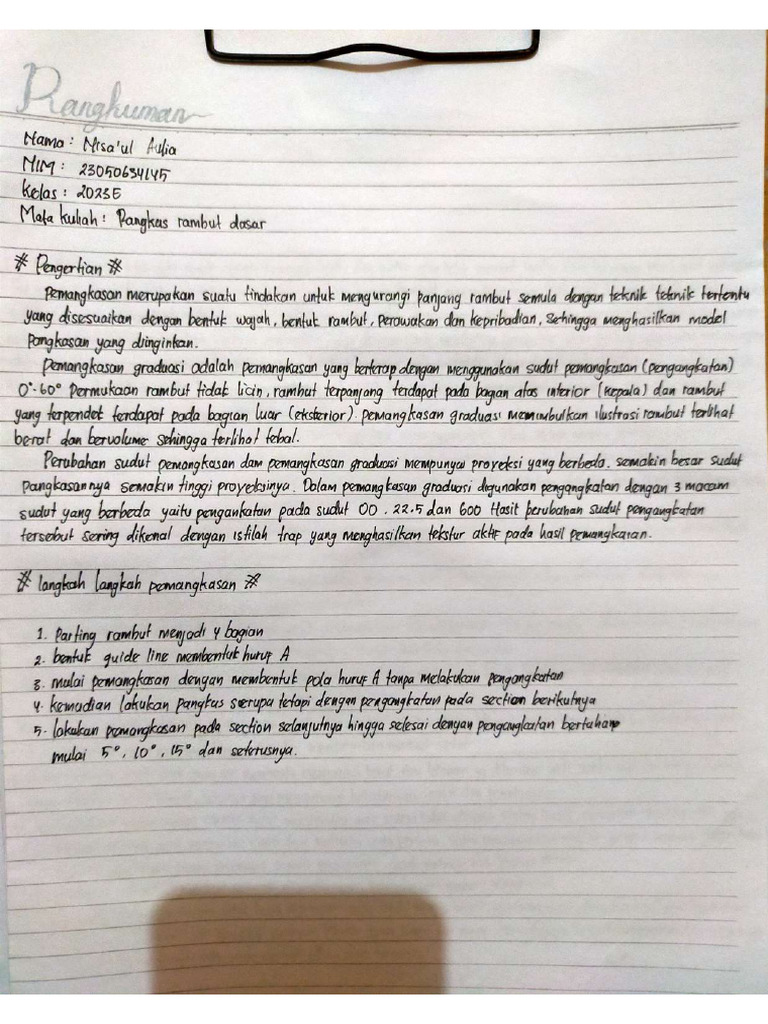 Rangkuman
Nama : Nisa'ul Aulia
NIM : 23050634145
Kelas : 2023E
Mata kuliah : Pangkas rambut dasar
# Pengertian #
Pemangkasan merupakan suatu tindakan untuk mengurangi panjang rambut semula dengan teknik teknik tertentu
yang disesuaikan dengan bentuk wajah, bentuk rambut, perawakan dan kepribadian, sehingga menghasilkan model
Pangkasan yang diinginkan.
Pemangkasan graduasi adalah pemangkasan yang berterap dengan menggunakan sudut pemangkasan (pengangkatan)
0°-60° Permukaan rambut tidak licin, rambut terpanjang terdapat pada bagian atas interior (kepala) dan rambut
yang terpendet terdapat pada bagian luar (eksterior). pemangkasan graduasi menimbulkan ilustrasi rambut terlihat
berat dan bervolume sehingga terlihat tebal.
Perubahan sudut pemangkasan dam pemangkasan graduasi mempunyai proyeksi yang berbeda. semakin besar sudut
Pangkasannya semakin tinggi proyeksinya. Dalam pemangkasan graduasi digunakan pengangkatan dengan 3 macam
sudut yang berbeda yaitu pengankatan pada sudut 00. 22.5 dan 600 Hasit perubahan sudut pengangkatan
tersebut sering dikenal dengan istilah trap yang menghasilkan tekstur aktif pada hasil pemangkasan.
# langkah langkah pemangkasan #
1. Parting rambut menjadi 4 bagian
2. bentuk guide line membentuk huruf A
3. mulai pemangkasan dengan membentuk pola huruf A tanpa melakukan pengangkatan
4. kemudian lakukan pangkas serupa tetapi dengan pengangkatan pada section berikutnya
5. lakukan pemangkasan pada section selanjutnya hingga selesai dengan pengangkatan bertahap
mulai 5°, 10°, 15° dan seterusnya.